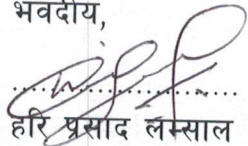 भवदीय,
........................
हरि प्रसाद लम्साल